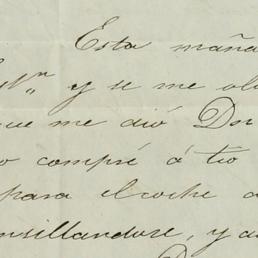 Esta maña
y se me ol
que me dió Dn
compré á tio
para el coche
nsillandose, y a